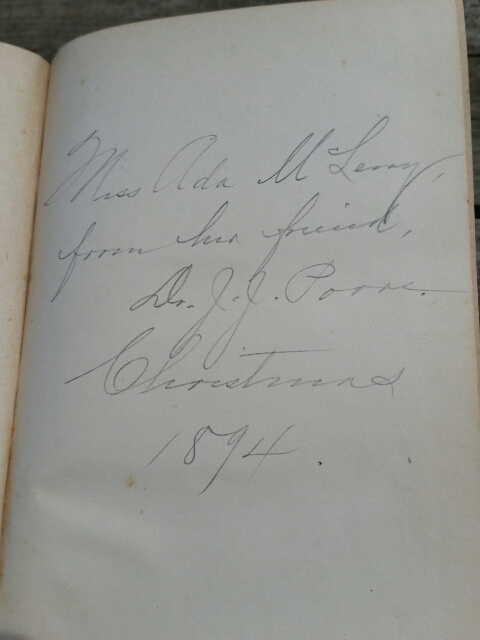 Miss Ada McLeroy,
from her friend,
Dr. J. J. Poore.
Christmas
1894.